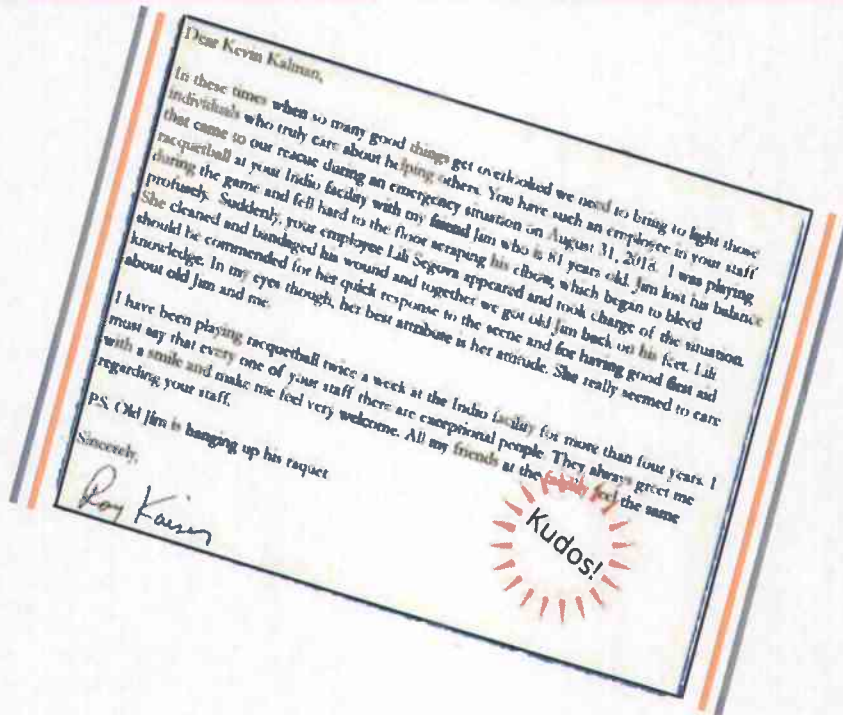 Dear Kevin Kalman,
In these times when so many good things get overlooked we need to bring to light those
individuals who truly care about helping others. You have such an employee in your staff
that came to our rescue during an emergency situation on August 31, 2018. I was playing
racquetball at your Indio facility with my friend Jim who is 81 years old. Jim lost his balance
during the game and fell hard to the floor scraping his elbow, which began to bleed
profusely. Suddenly, your employee Lili Segova appeared and took charge of the situation.
She cleaned and bandaged his wound and together we got old Jim back on his feet. Lili
should be commended for her quick response to the scene and for having good first aid
knowledge. In my eyes though, her best attribute is her attitude. She really seemed to care
about old Jim and me.
I have been playing racquetball twice a week at the Indio facility for more than four years. I
must say that every one of your staff there are exceptional people. They always greet me
with a smile and make me feel very welcome. All my friends at the feel the same
regarding your staff.
P.S. Old Jim is hanging up his raquet
Sincerely,
Roy Kaiser
Kudos!